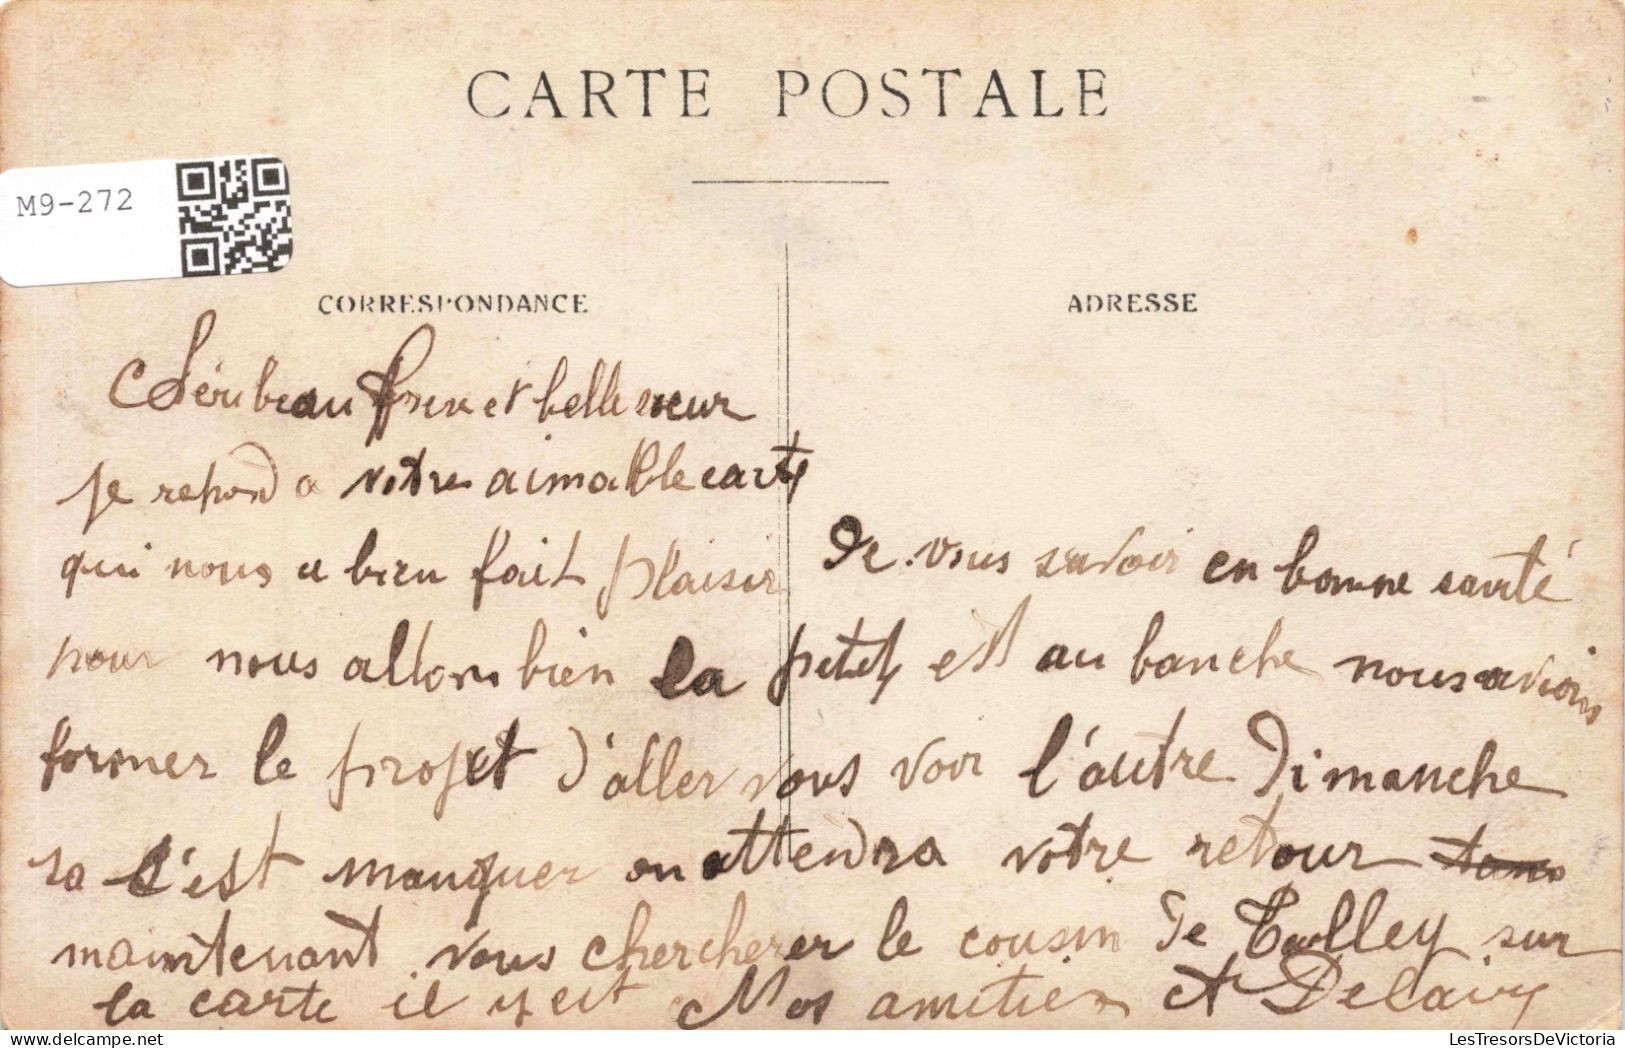 CARTE POSTALE
M9-272
CORRESPONDANCE
ADRESSE
Chéri beau frere et belle sœur
je repond a votre aimable carte
qui nous a bien fait plaisir De vous savoir en bonne santé
pour nous allons bien la petite est au banche nous avions
former le projet d'aller vous voir l'autre Dimanche
sa c'est manquer on attendra votre retour
maintenant vous chercherer le cousin De Tulley sur
la carte il y est Nos amitier et
LesTresorsDeVictoria.com